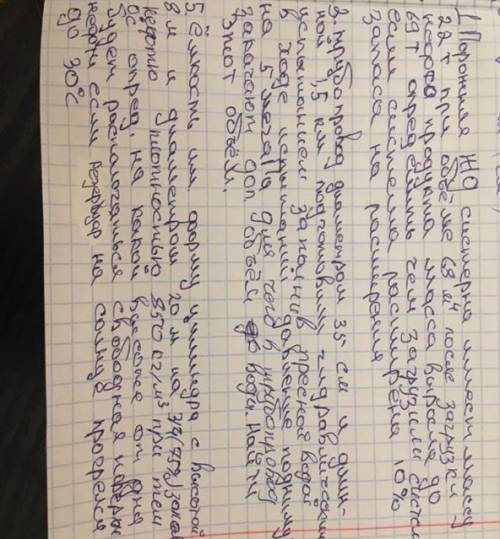 1 Порожняя ЖД систерна имеет массу
22 т при объёме 68 м после загрузки
продукта масса выросла до
69 т определить чем загрузили систем
если система расширена 10%
запаса на расширения
2. трубопровод диаметром 35 см и длин-
ной 1,5 км подготовили гидравлическим
испытанием запонив пресной водой
в ходе испытаний давление подниму
на 5 мегаПа для чего в трубопровод
закачают доп объём воды. Найти
Этот объём.
5. ёмкость им. форму цилиндра с высотой
8 м и диаметром 20 м на 3/4
плотностью 850 кг/м³ при тем
0С опред. на какой высоте от дна
будет располагаться свободная поверх
нефти если резервуар на солнце прогрелся
до 30°С